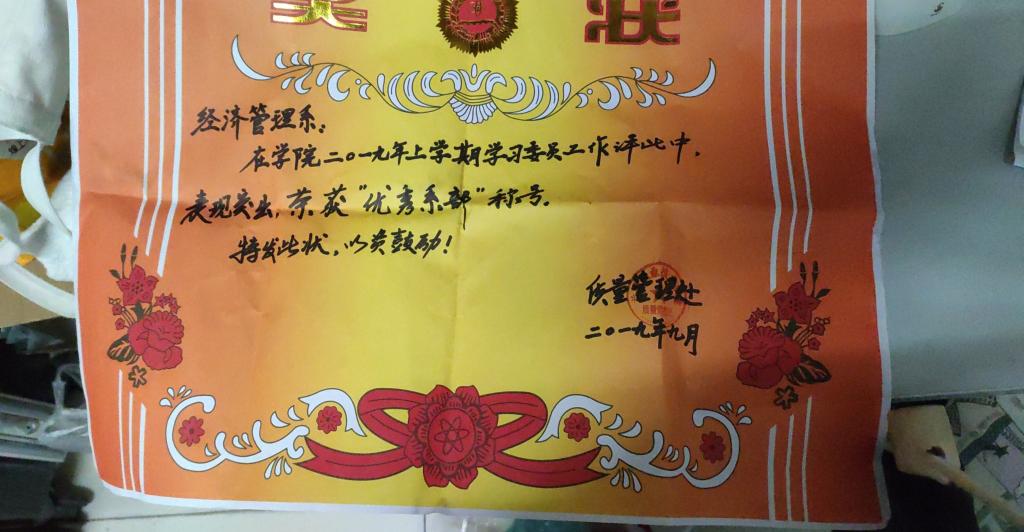 奖 状
经济管理系:
在学院二〇一九年上学期学习委员工作评比中,
表现突出,荣获"优秀系部"称号。
特发此状,以资鼓励!
质量管理处
二〇一九年九月